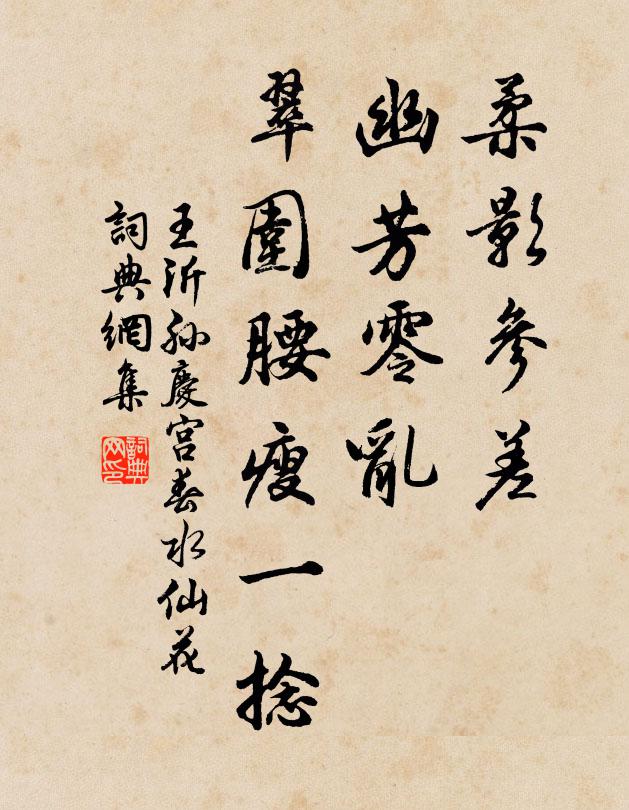 柔影參差
幽芳零亂
翠圍腰瘦一捻
王沂孫慶宮春水仙花
詞典網集
詞典網印